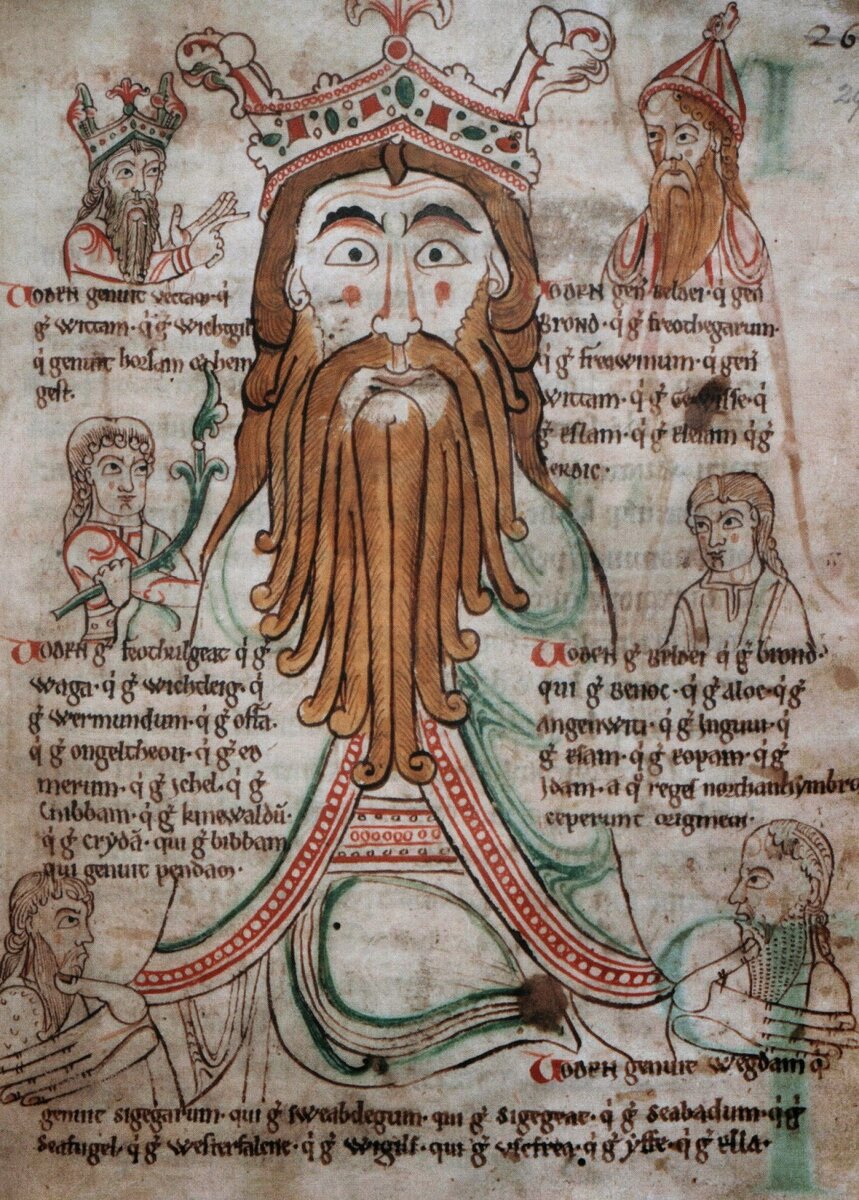 26
Uoden genuit vectam· q̄
ḡ wittam· q̄ ḡ wichtgil
q̄ genuit horsam & hen
gest.
Uoden gen̄ Beldei· q̄ gen̄
Brond· q̄ ḡ freothegarum·
q̄ ḡ freawinum· q̄ gen̄
wittam· q̄ ḡ gewisse· q̄
ḡ eslam· q̄ ḡ eleiam q̄ ḡ
Cerdic·
Uoden ḡ feothulgeat q̄ ḡ
waga· q̄ ḡ wichtleig· q̄
ḡ wermundum· q̄ ḡ offā·
q̄ ḡ ongeltheou· q̄ ḡ eo
merum· q̄ ḡ ichel· q̄ ḡ
Cnibbam· q̄ ḡ kinewaldū·
q̄ ḡ crydā· qui ḡ bibbam
qui genuit pendam·
Uoden ḡ Beldei q̄ ḡ brond·
qui ḡ Benoc· q̄ ḡ aloc· q̄ ḡ
Angenwiti· q̄ ḡ Inguui· q̄
ḡ esam· q̄ ḡ eopam· q̄ ḡ
Idam· a q̄ reges northanhymbro
ceperunt originem·
Uoden genuit wegdam q̄
genuit sigegarum· qui ḡ sweabdegum· qui ḡ sigegeat· q̄ ḡ seabadum· q̄ ḡ
seafugel· q̄ ḡ westerfalene· q̄ ḡ wigils· qui ḡ uscfrea· q̄ ḡ yffe· q̄ ḡ ella·